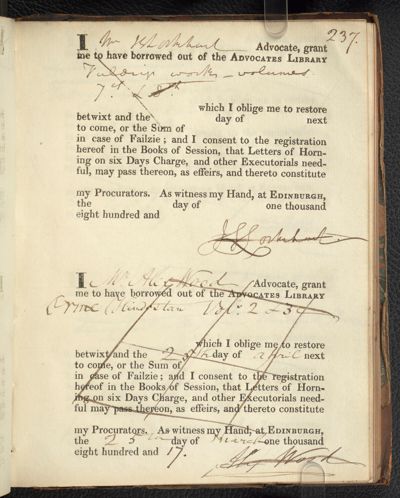 237.
I Mr JG Lockhart Advocate, grant
me to have borrowed out of the ADVOCATES LIBRARY
works - volumes
7th & 8th
which I oblige me to restore
betwixt and the day of next
to come, or the Sum of
in case of Failzie; and I consent to the registration
hereof in the Books of Session, that Letters of Horn-
ing on six Days Charge, and other Executorials need-
ful, may pass thereon, as effeirs, and thereto constitute
my Procurators. As witness my Hand, at EDINBURGH,
the day of one thousand
eight hundred and
JG Lockhart
I Mr Alex Wood Advocate, grant
me to have borrowed out of the ADVOCATES LIBRARY
Orme's Hindostan Vol. 2 & 3d
which I oblige me to restore
betwixt and the 25th day of April next
to come, or the Sum of
in case of Failzie; and I consent to the registration
hereof in the Books of Session, that Letters of Horn-
ing on six Days Charge, and other Executorials need-
ful may pass thereon, as effeirs, and thereto constitute
my Procurators. As witness my Hand, at EDINBURGH,
the 25th day of March one thousand
eight hundred and 17.
Alex Wood